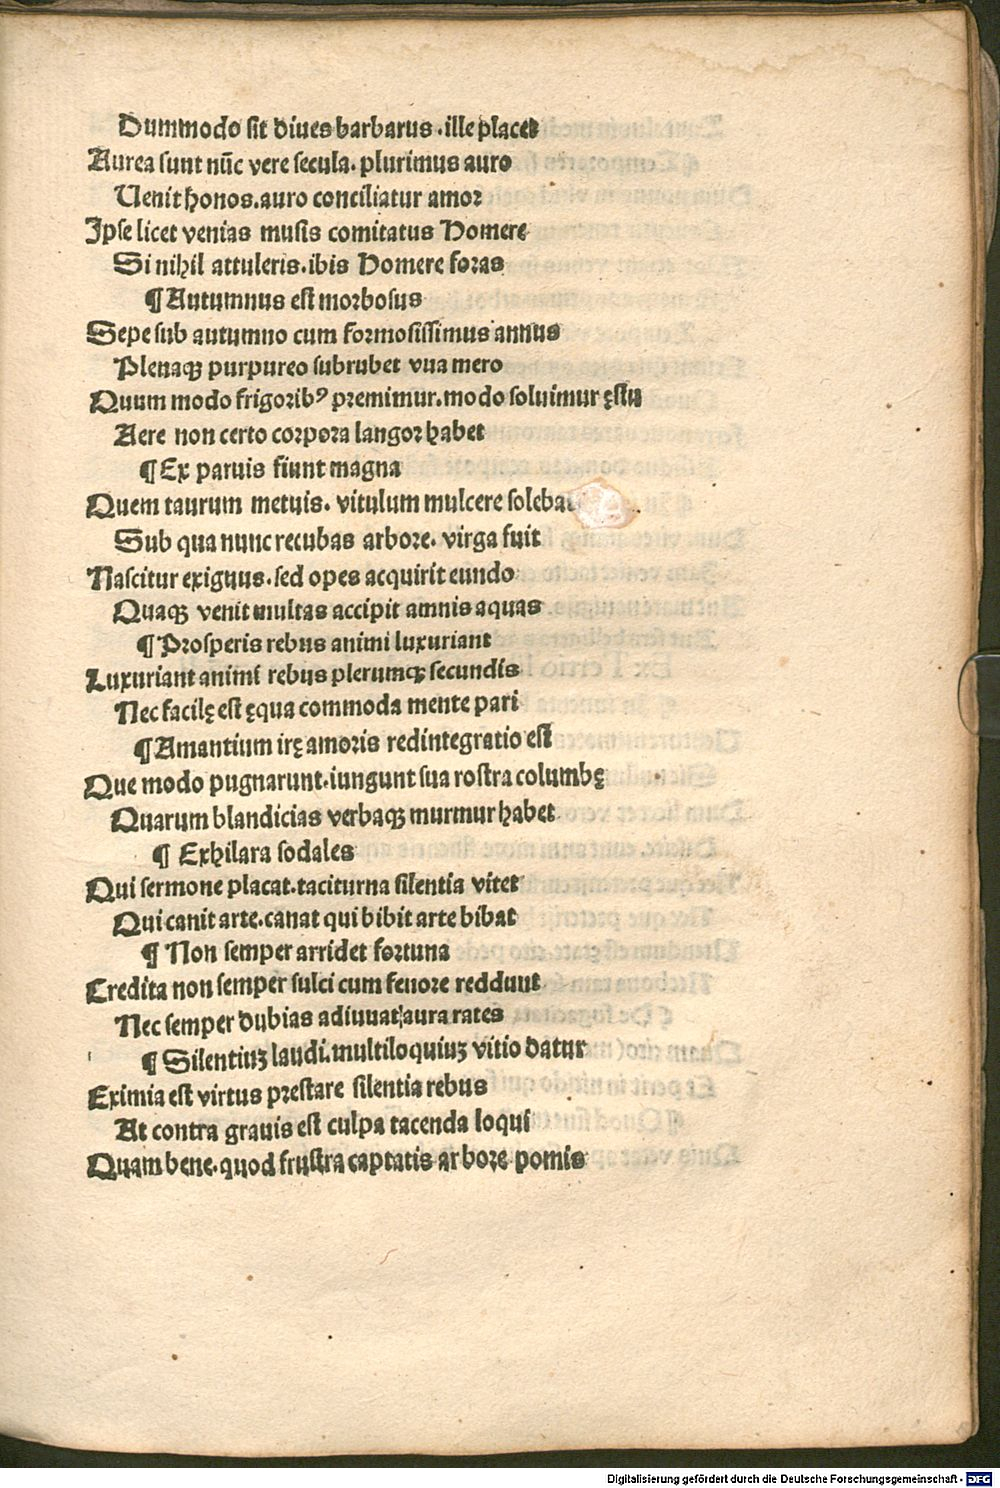 Dummodo sit diues barbarus . ille placet
Aurea sunt nūc vere secula . plurimus auro
Uenit honos . auro conciliatur amor
Ipse licet venias musis comitatus Homere
Si nihil attuleris . ibis Homere foras
¶ Autumnus est morbosus
Sepe sub autumno cum formosissimus annus
Plenaqꝫ purpureo subrubet vua mero
Quum modo frigoribꝰ premimur . modo soluimur ęstu
Aere non certo corpora langor habet
¶ Ex paruis fiunt magna
Quem taurum metuis . vitulum mulcere solebas
Sub qua nunc recubas arbore . virga fuit
Nascitur exiguus . sed opes acquirit eundo
Quaqꝫ venit multas accipit amnis aquas
¶ Prosperis rebus animi luxuriant
Luxuriant animi rebus plerumqꝫ secundis
Nec facilę est ęqua commoda mente pari
¶ Amantium irę amoris redintegratio est
Que modo pugnarunt . iungunt sua rostra columbę
Quarum blandicias verbaqꝫ murmur habet
¶ Exhilara sodales
Qui sermone placat . taciturna silentia vitet
Qui canit arte . canat qui bibit arte bibat
¶ Non semper arridet fortuna
Credita non semper sulci cum fenore reddunt
Nec semper dubias adiuuat aura rates
¶ Silentiuꝫ laudi . multiloquiuꝫ vitio datur
Eximia est virtus prestare silentia rebus
At contra grauis est culpa tacenda loqui
Quam bene . quod frustra captatis arbore pomis
Digitalisierung gefördert durch die Deutsche Forschungsgemeinschaft - DFG